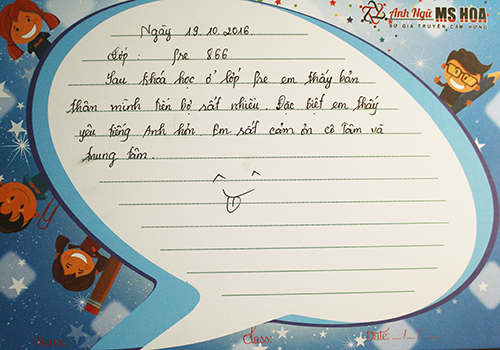 Anh Ngữ MS HOA
SỨ GIẢ TRUYỀN CẢM HỨNG
Ngày 19.10.2016.
Lớp : Pre 866
Sau khoá học ở lớp Pre em thấy bản
thân mình tiến bộ rất nhiều. Đặc biệt em thấy
yêu tiếng Anh hơn. Em rất cảm ơn cô Tâm và
trung tâm.
Name:
Class:
Date: ..../..../